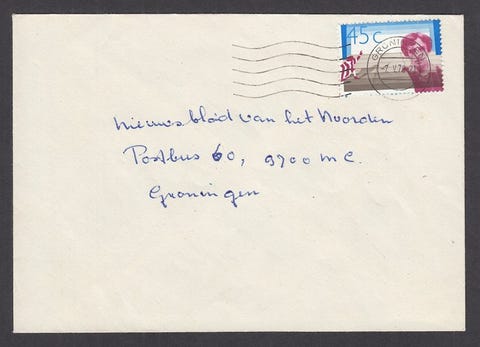 45c
GRONINGEN
Nieuwsblad van het Noorden
Postbus 60, 9700 MC.
Groningen